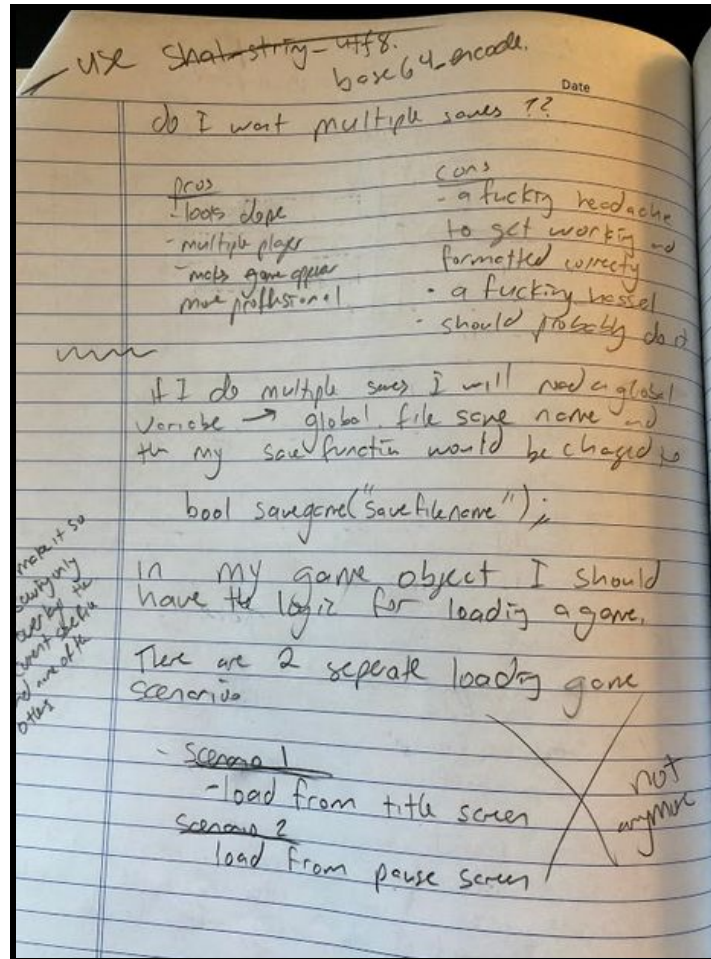 - use sha1_string_utf8.
base64_encode.
Date
do I want multiple saves ??
pros
- looks dope
- multiple player
- makes game appear
more proffssional
cons
- a fucking headache
to get working and
formatted correctly
- a fucking hassel
- should probably do it
if I do multiple saves I will need a global
variable → global.file save name and
then my save function would be changed to
bool savegame("savefilename");
make it so
saving only
overlaps the
current savefile
and none of the
others
in my game object I should
have the logic for loading a game.
There are 2 seperate loading game
scenarios
- Scenario 1
- load from title screen
Scenario 2
load from pause screen
not
anymore